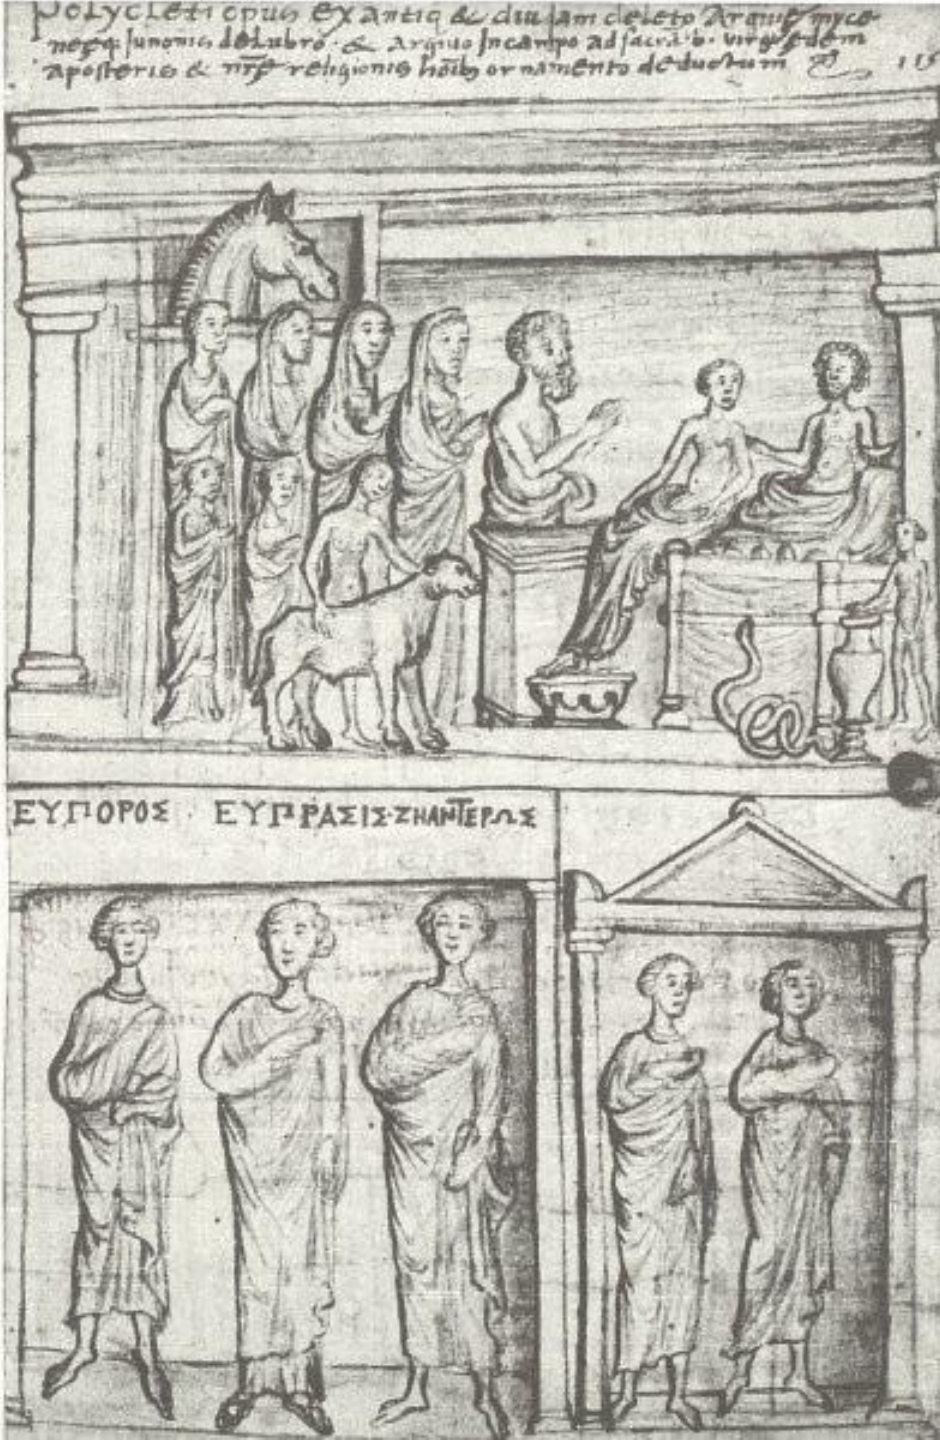 polycleti opus ex antiq & diu iam deleto Arquię myce-
nęq; Junonis delubro · & Arquio Incampo ad sacra · b · virg ędem
aposteris & nr̄ę religionis hoīb ornamento deductum 115
ΕΥΠΟΡΟΣ · ΕΥΠΡΑΣΙΣ·ΖΗΑΝΤΕΡΩΣ